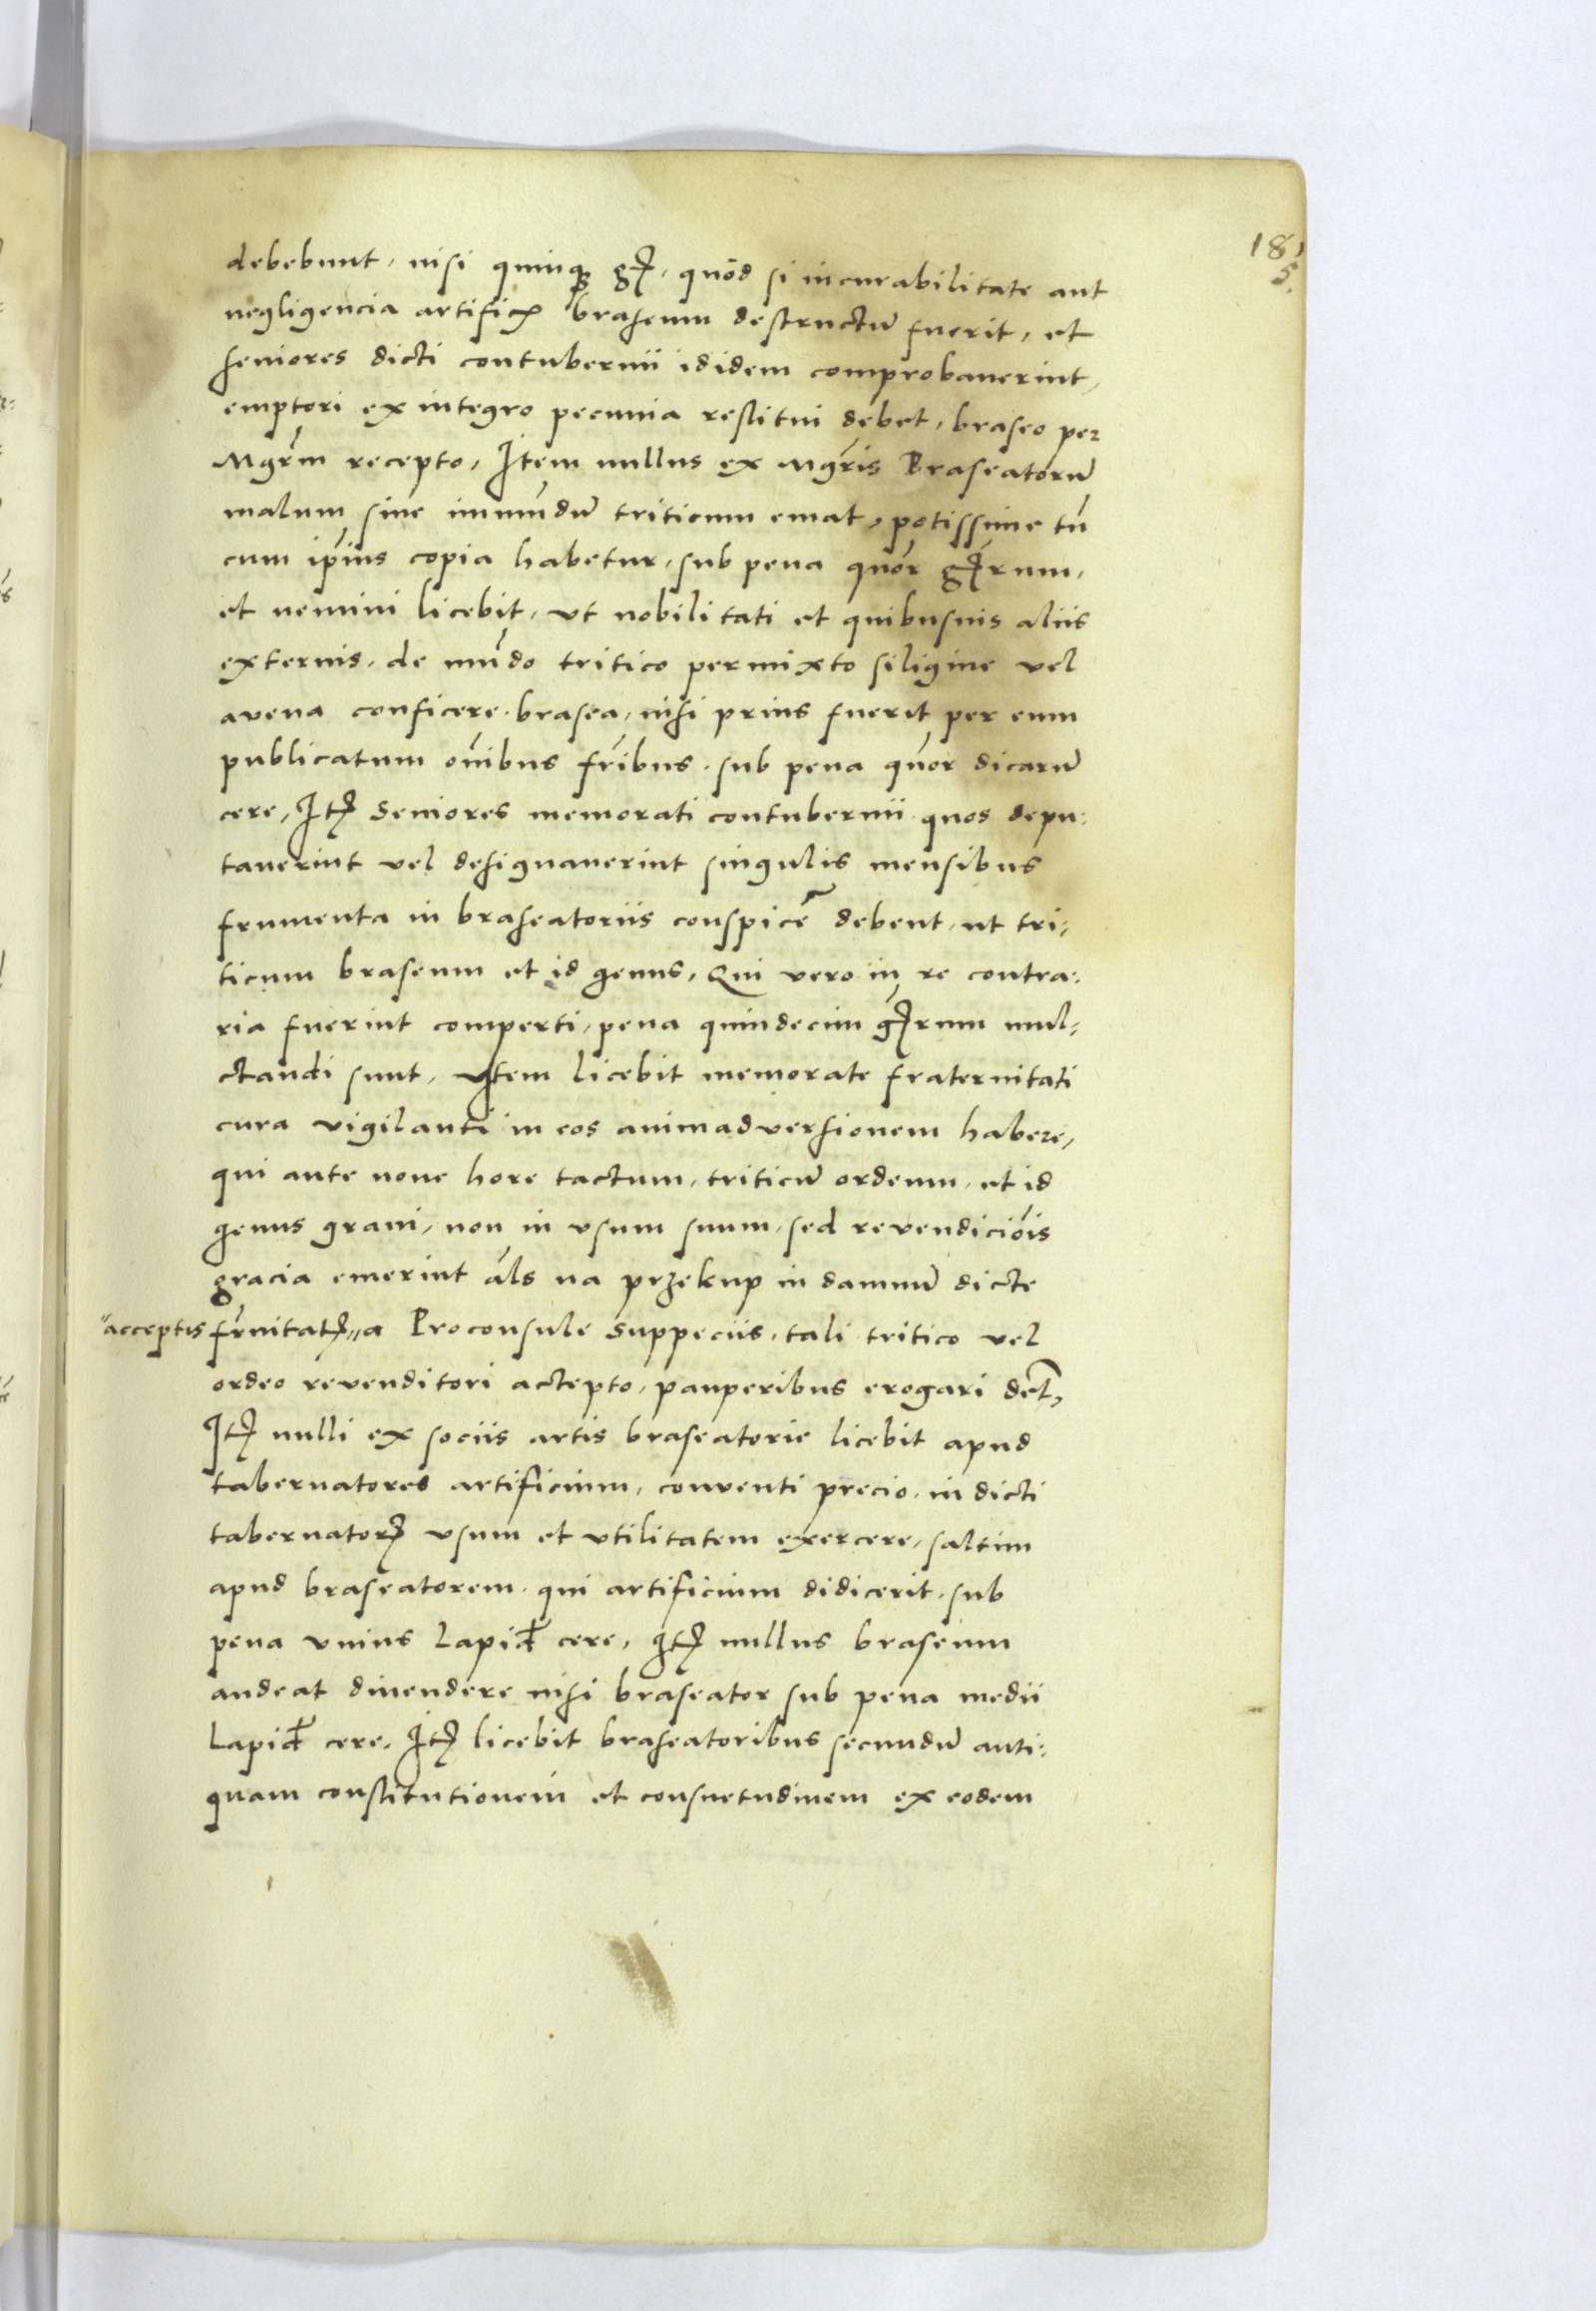 181
5.
debebunt, nisi quinq₃ gꝝ, quod si incurabilitate aut
negligencia artificꝭ braseum destructū fuerit, et
seniores dicti contubernii ididem comprobauerint,
emptori ex integro pecunia restitui debet, braseo per
Mgrm̄ recepto, Item nullus ex Mgr̄is Braseatorū
malum siue immūdū triticum emat, potissime tū
cum ip̄ius copia habetur, sub pena quor̄ gꝝrum,
et nemini licebit, vt nobilitati et quibusuis aliis
externis, de mūdo tritico permixto siligine vel
avena conficere brasea, nisi prius fuerit per eum
publicatum om̄ibus fr̄ibus, sub pena quor̄ dicarū
cere, Itꝫ Seniores memorati contubernii quos depu:
tauerint vel designauerint singulis mensibus
frumenta in braseatoriis conspicē debent, ut tri:
ticum braseum et id genus, Qui vero in re contra:
ria fuerint comperti, pena quindecim gꝝrum mul:
ctandi sunt, Item licebit memorate fraternitati
cura vigilanti in eos animadversionem habere,
qui ante none hore tactum, triticū ordeum, et id
genus grani, non in vsum suum, sed revendiciōis
gracia emerint al̄s na przekup in damnū dicte
"acceptis fr̄nitatꝭ "a Proconsule Suppeciis, tali tritico vel
ordeo revenditori accepto, pauperibus erogari debt̄,
Itꝫ nulli ex sociis artis braseatorie licebit apud
tabernatores artificium, conventi precio, in dicti
tabernatorꝭ vsum et vtilitatem exercere, saltim
apud braseatorem qui artificium didicerit, sub
pena vnius Lapidꝭ cere, Itꝫ nullus braseum
audeat divendere nisi braseator sub pena medii
Lapidꝭ cere, Itꝫ licebit braseatoribus secundū anti:
quam constitutionem et consuetudinem ex eodem